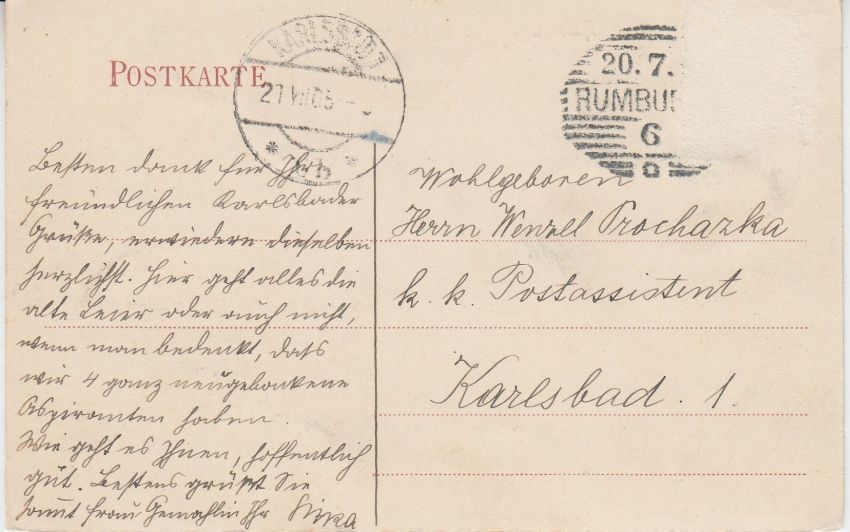 POSTKARTE
KARLSBAD 1
21 VII 05
* b *
20.7.
RUMBU
6
a
Besten dank für Ihre
freundlichen Karlsbader
Grüße, erwiedere dieselben
herzlichst. Hier geht alles die
alte Leier oder auch nicht,
wenn man bedenkt, dass
wir 4 ganz neugebackene
Aspiranten haben.
Wie geht es Ihnen, hoffentlich
gut. Bestens grüßt Sie
sammt Frau Gemahlin Ihr
Wohlgeboren
Herrn Wenzel Prochazka
k. k. Postassistent
Karlsbad. 1.